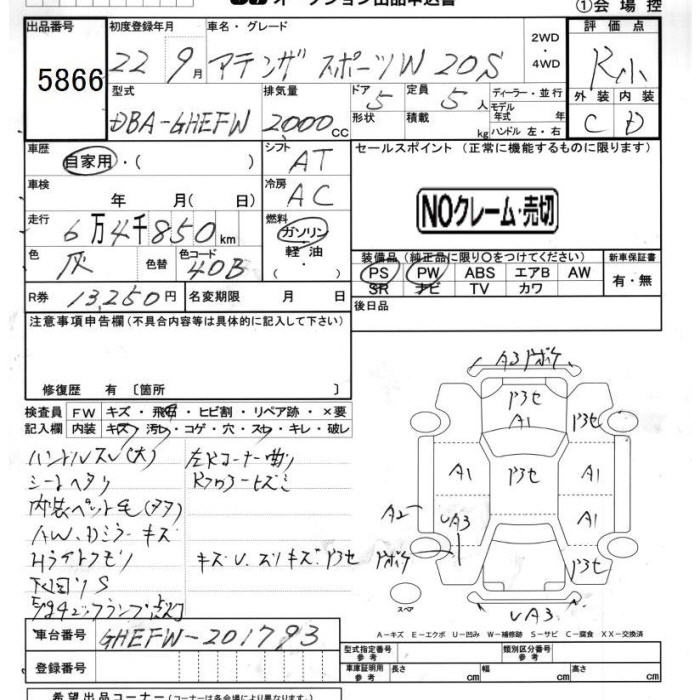 オークション出品申込書
①会場控
出品番号 5866
初度登録年月 22 9月
車名・グレード アテンザ スポーツW 20S
2WD・4WD
評価点 R小
外装 C 内装 D
型式 DBA-GHEFW
排気量 2,000cc
ドア 5 形状
定員 5人 積載 kg
ディーラー・並行
モデル年式 年式
ハンドル 左・右
車歴 自家用・( )
シフト AT
セールスポイント (正常に機能するものに限ります)
NOクレーム・売切
車検 年 月( 日)
冷房 AC
走行 6万4千850km
燃料 ガソリン・軽油・( )
色 灰 色替 色コード 40B
装備品 (純正品に限り○をつけてください)
PS PW ABS エアB AW
SR ナビ TV カワ
新車保証書 有・無
R券 13,250円
名変期限 月 日
後日品
注意事項申告欄 (不具合内容等は具体的に記入して下さい)
修復歴 有 〔箇所 〕
検査員記入欄
FW キズ・飛石・ヒビ割・リペア跡・×要
内装 キズ・汚レ・コゲ・穴・スレ・キレ・破レ
ハンドルスレ(大) 左Rコーナー曲り
シートヘタリ
内装ペット毛(タタ)
AW、Dミラーキズ
下回りS
キズU、スリキズ、ドヨセ
A3 ドボケ
ドヨセ
A1
A1
ドヨセ
A1
A2
UA3
A1
ドボケ
ドヨセ
UA3
スペア
A-キズ E-エクボ U-凹み W-補修跡 S-サビ C-腐食 XX-交換済
車台番号 GHEFW-201793
登録番号
型式指定番号 類別区分番号
車庫証明用参考 長さ cm 幅 cm 高さ cm
希望出品コーナー (コーナーは各会場により異なります。)